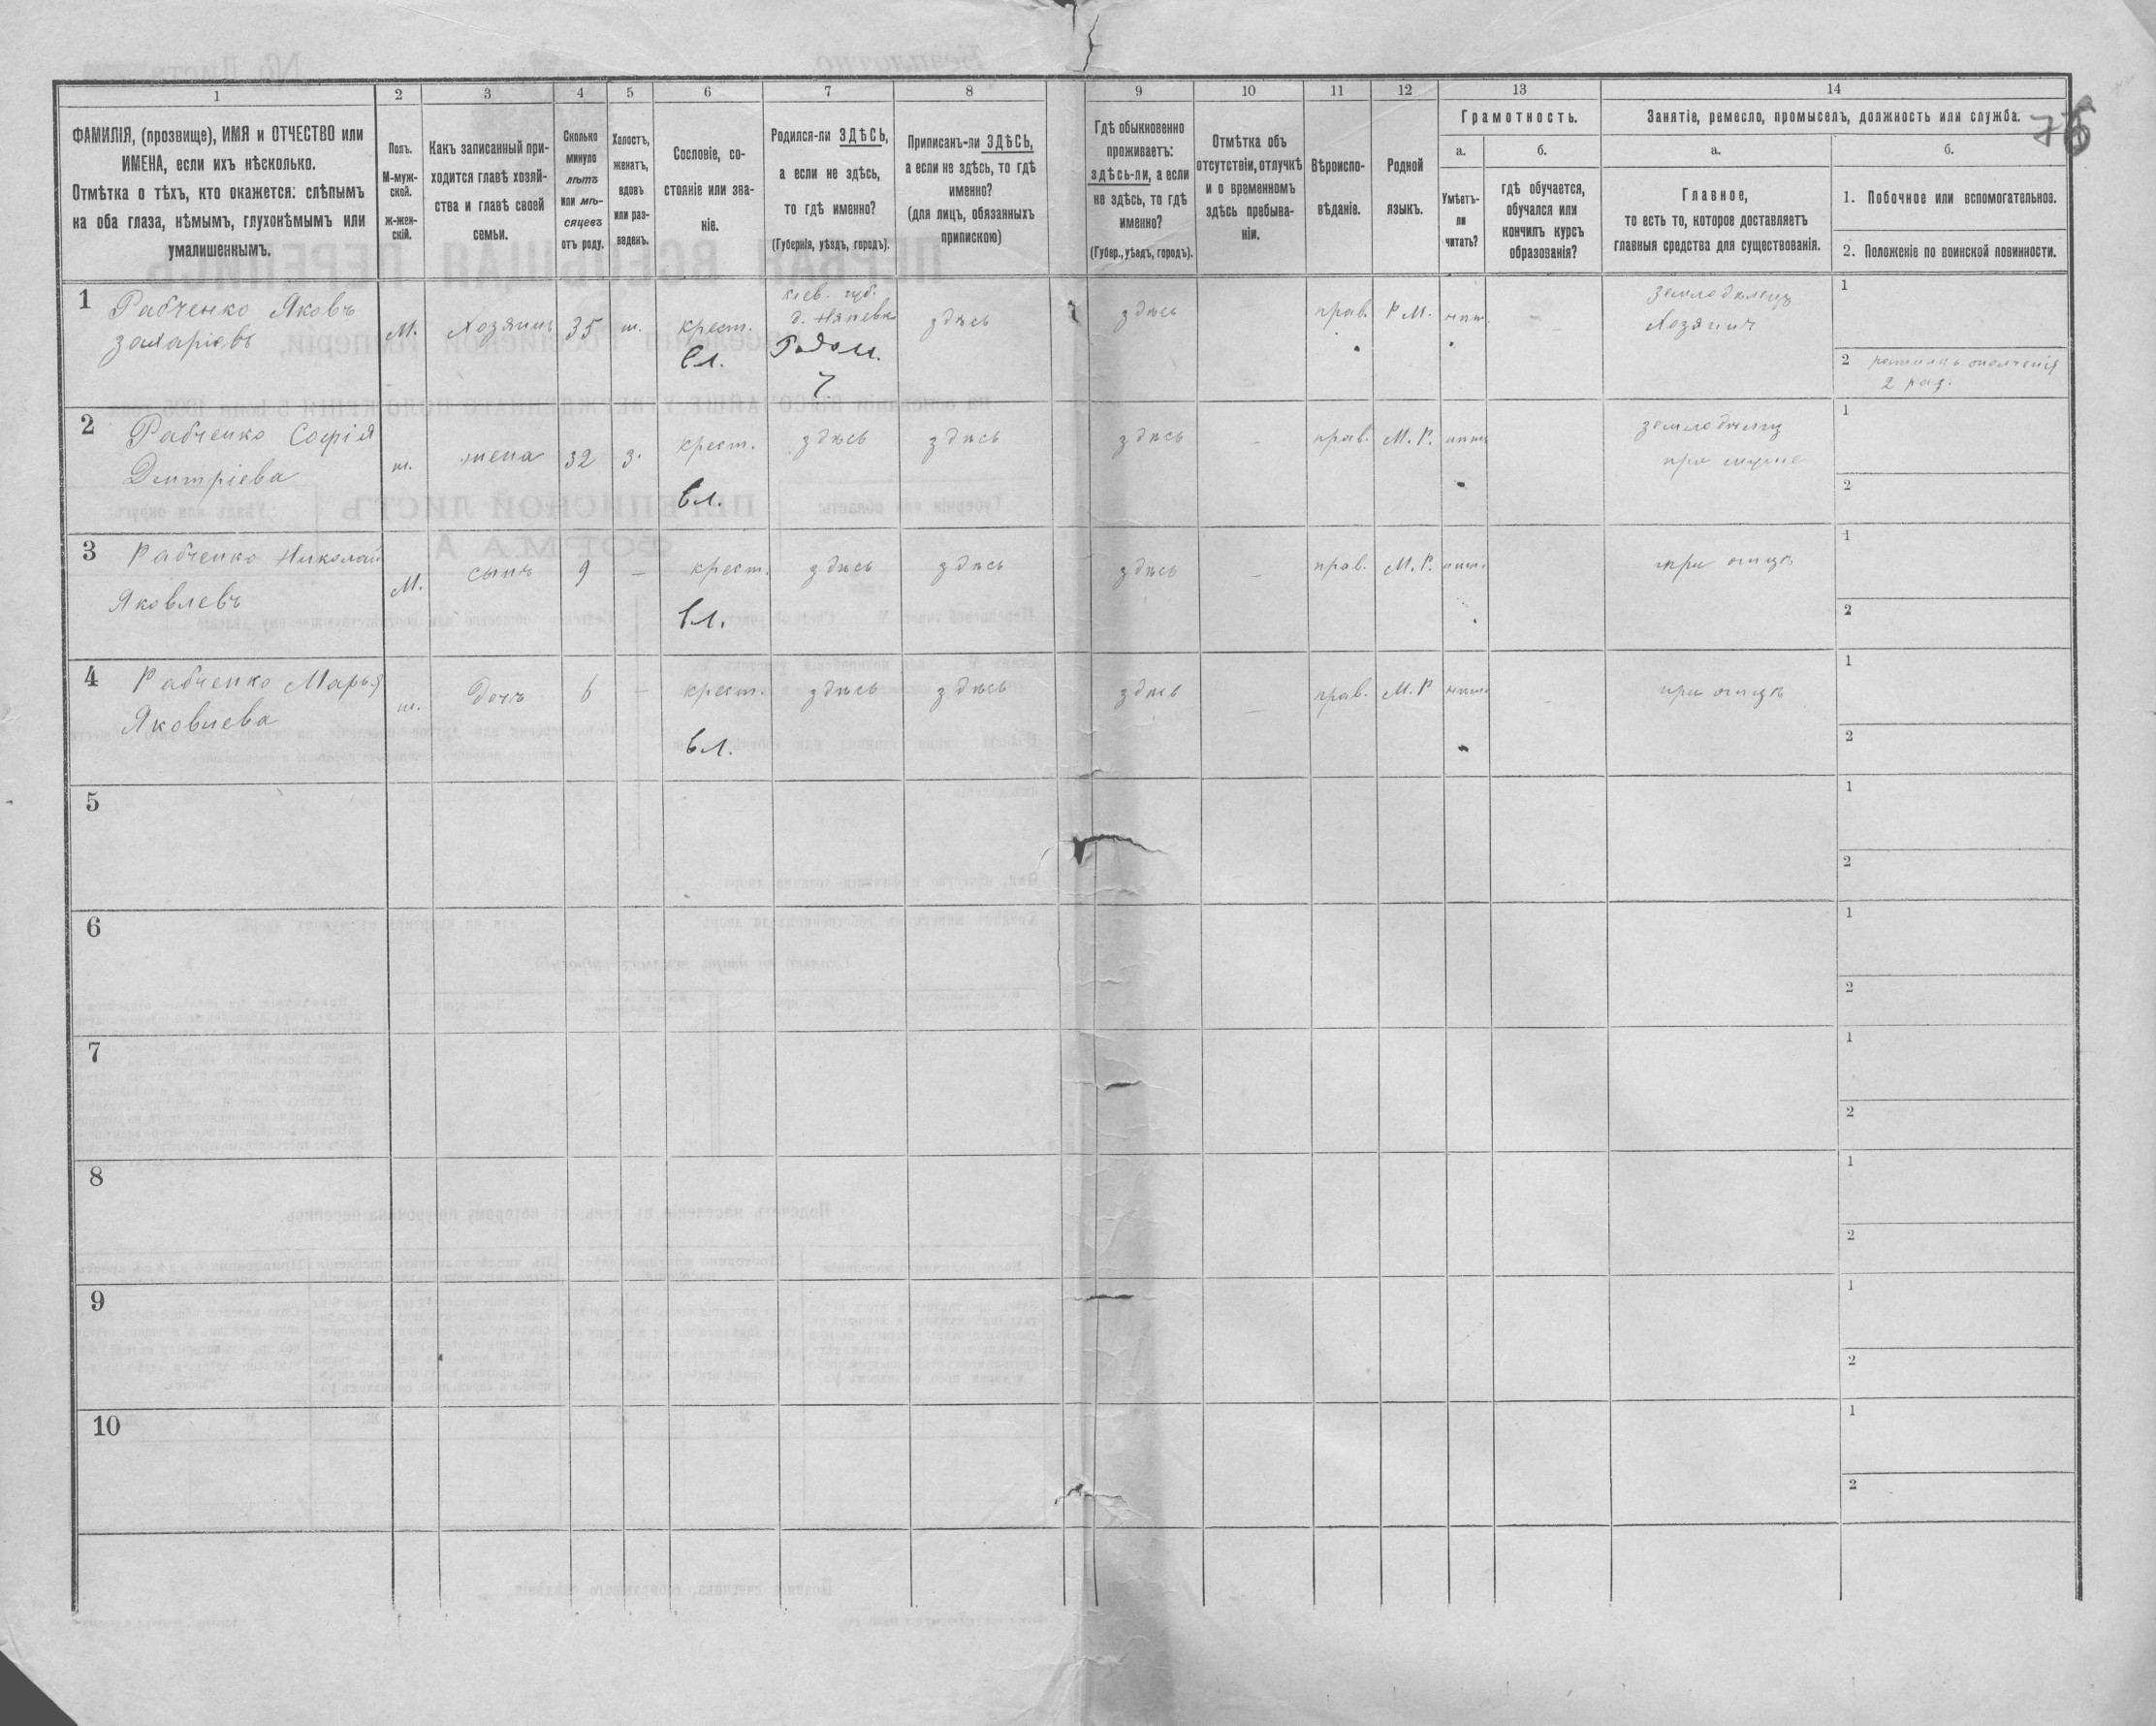 1 2 3 4 5 6 7 8 9 10 11 12 13 14
ФАМИЛІЯ, (прозвище), ИМЯ и ОТЧЕСТВО или
ИМЕНА, если ихъ нѣсколько.
Отмѣтка о тѣхъ, кто окажется: слѣпымъ
на оба глаза, нѣмымъ, глухонѣмымъ или
умалишеннымъ.
Полъ.
М-муж-
ской.
ж-жен-
скій.
Какъ записанный при-
ходится главѣ хозяй-
ства и главѣ своей
семьи.
Сколько
минуло
лѣтъ
или мѣ-
сяцевъ
отъ роду.
Холостъ,
женатъ,
вдовъ
или раз-
веденъ.
Сословіе, со-
стояніе или зва-
ніе.
Родился-ли ЗДѢСЬ,
а если не здѣсь,
то гдѣ именно?
(Губернія, уѣздъ, городъ).
Приписанъ-ли ЗДѢСЬ,
а если не здѣсь, то гдѣ
именно?
(для лицъ, обязанныхъ
припискою)
Гдѣ обыкновенно
проживаетъ:
здѣсь-ли, а если
не здѣсь, то гдѣ
именно?
(Губер., уѣздъ, городъ).
Отмѣтка объ
отсутствіи, отлучкѣ
и о временномъ
здѣсь пребыва-
ніи.
Вѣроиспо-
вѣданіе.
Родной
языкъ.
Грамотность.
а.
Умѣетъ-
ли
читать?
б.
гдѣ обучается,
обучался или
кончилъ курсъ
образованія?
Занятіе, ремесло, промыселъ, должность или служба.
а.
Главное,
то есть то, которое доставляетъ
главныя средства для существованія.
б.
1. Побочное или вспомогательное.
2. Положеніе по воинской повинности.
1 Рабченко Яковъ
Захаріевъ
М. Хозяинъ 35 ж. крест.
вл.
кіев. губ.
Радом.
здѣсь здѣсь прав. Р М. нѣт.
земледѣлецъ
Хозяинъ
1
2 ратникъ ополченія
2 раз.
2 Рабченко Софія
Дмитріева
ж. жена 32 з. крест. здѣсь здѣсь здѣсь - прав. М. Р. нѣтъ
вл.
земледѣлец
при мужѣ
1
2
3 Рабченко Николай
Яковлевъ
М. сынъ 9 - крест. здѣсь здѣсь здѣсь - прав. М. Р. нѣт.
вл.
при отцѣ
1
2
4 Рабченко Марья
Яковлева
ж. дочь 6 - крест. здѣсь здѣсь здѣсь - прав. М. Р нѣт. -
вл.
при отцѣ
1
2
5
1
2
6
1
2
7
1
2
8
1
2
9
1
2
10
1
2